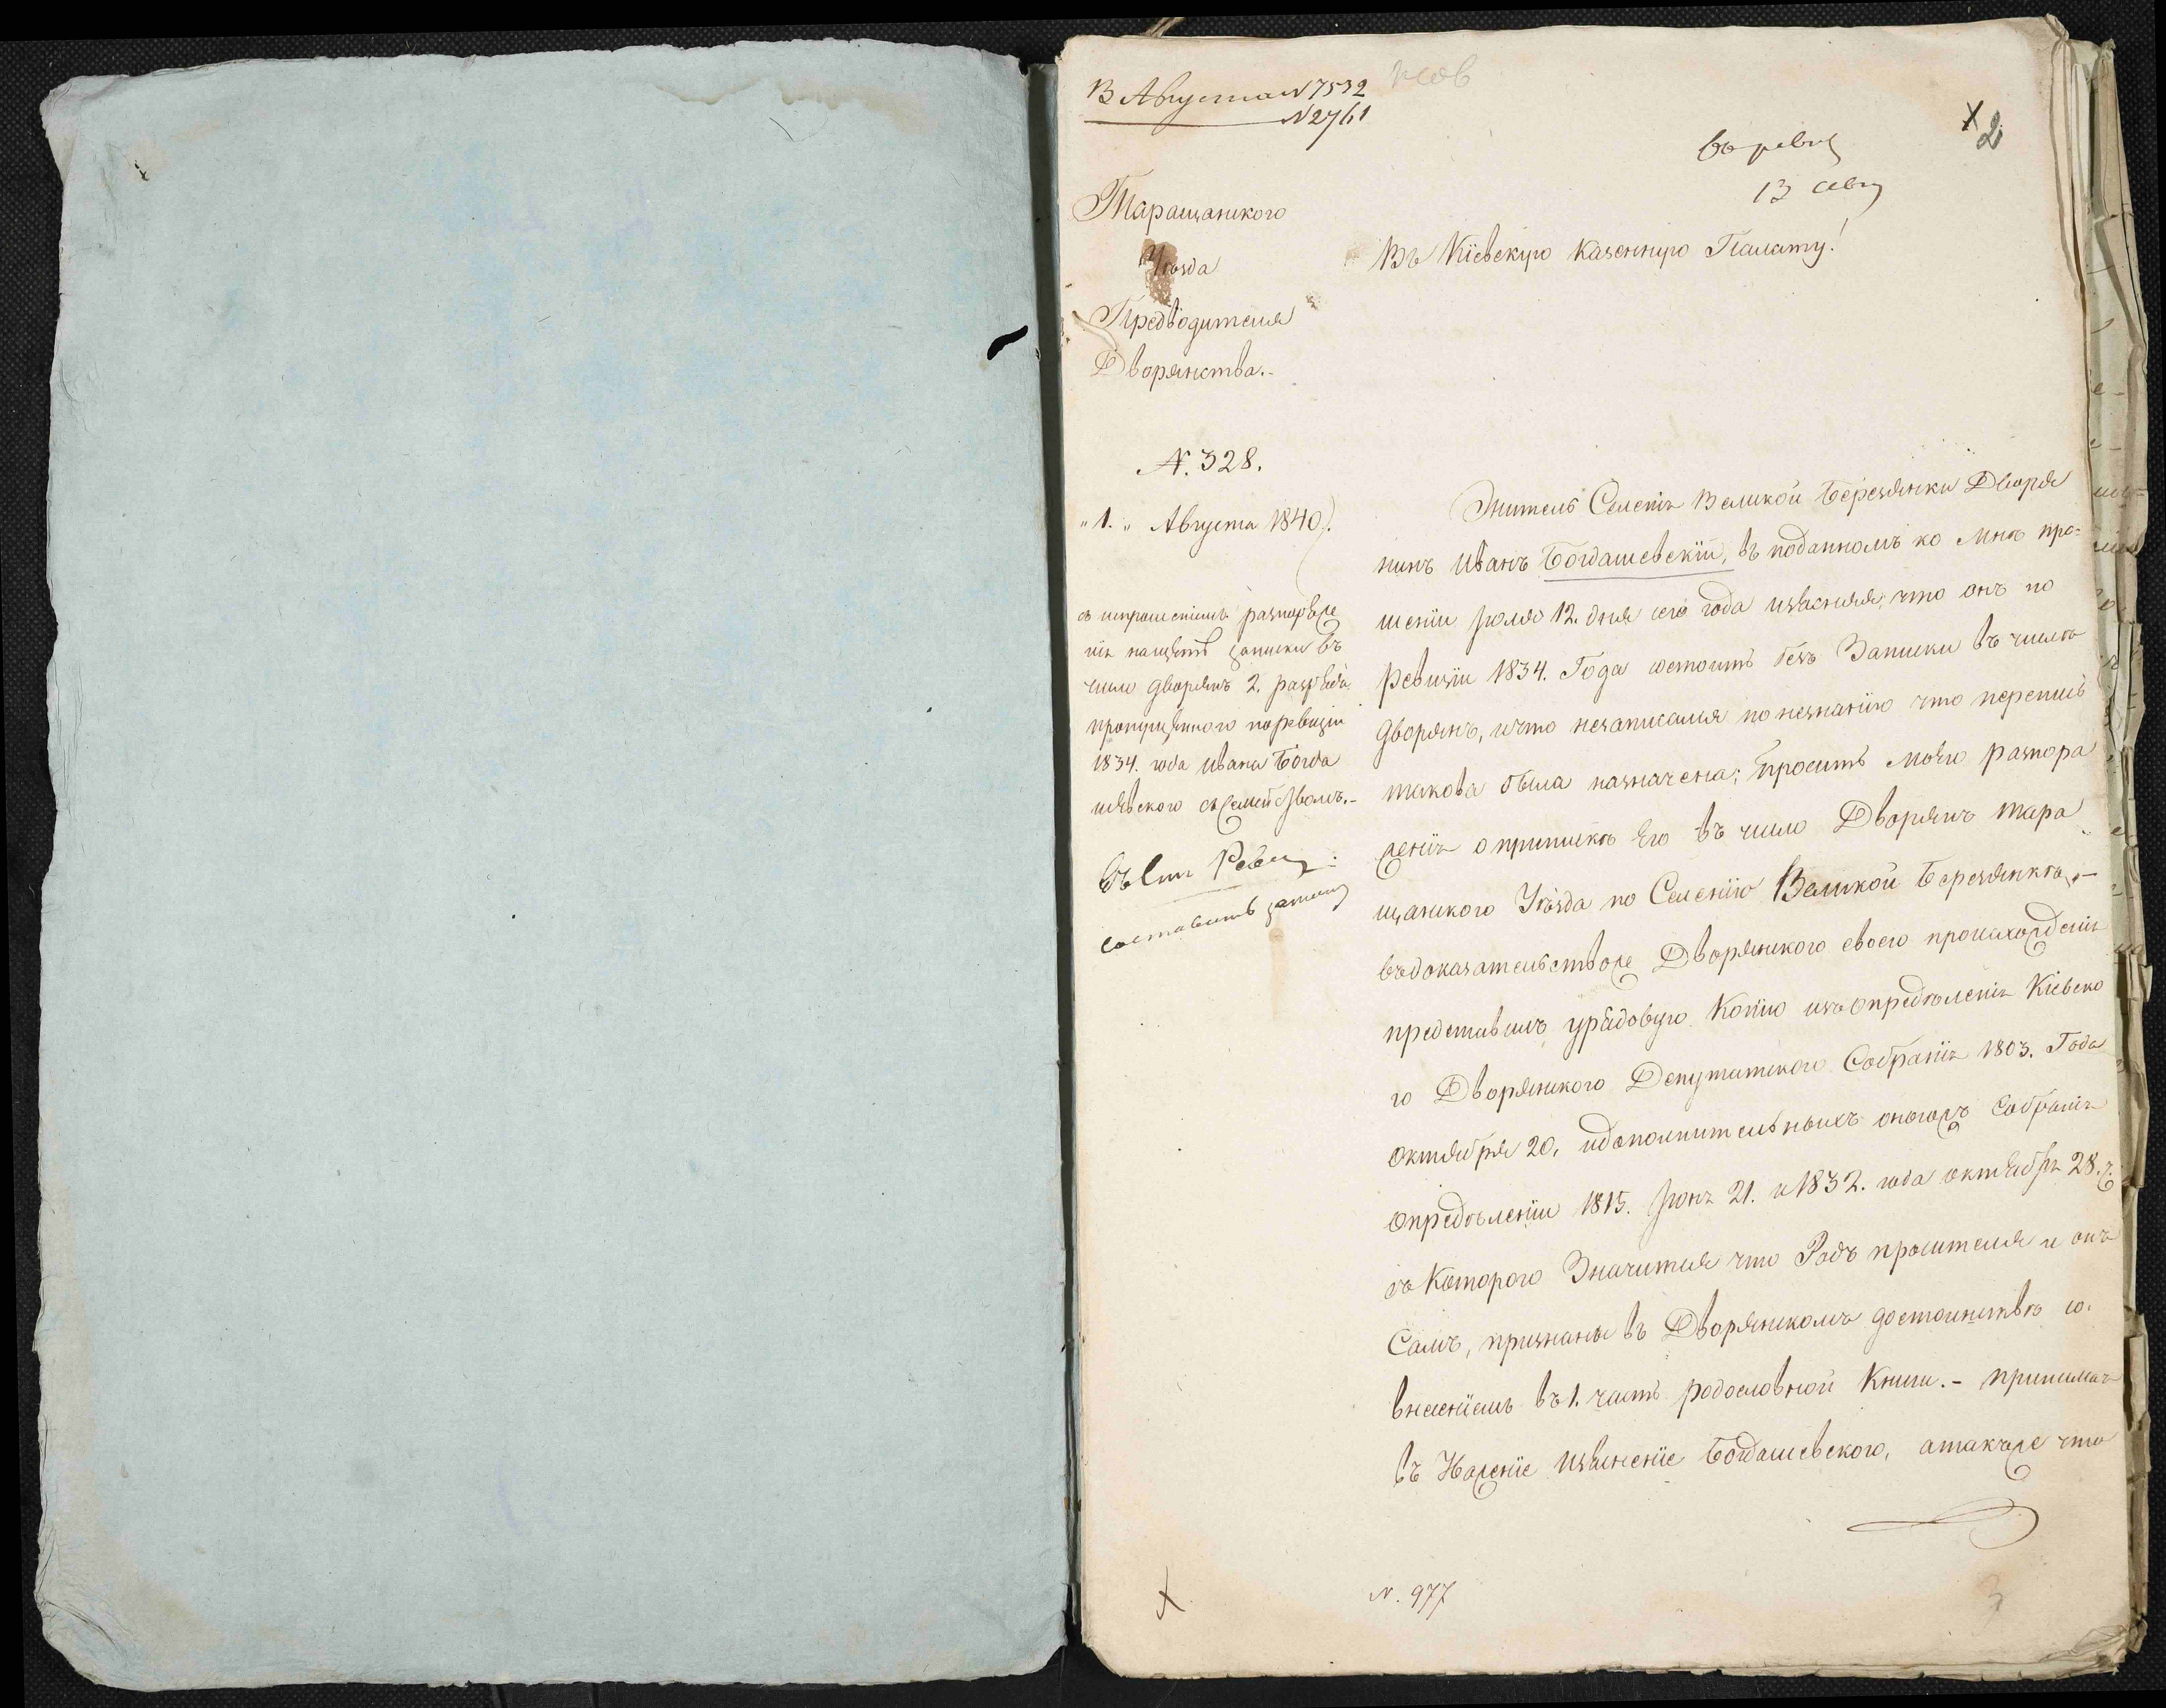 13 Августа N 7532
N 2761
въ ревиз
13 авг
2
Таращанского
Уѣзда
Предводителя
Дворянства.-
Въ Кіевскую Казенную Палату!
N. 328.
"1." Августа 1840.
съ испрошеніемъ разпоряже
нія на щетъ записки въ
число дворянъ 2. разряда
пропущенного по ревизіи
1834. года Ивана Богда
шевского съ семействомъ.-
Въ Ревиз.
составить записку
Житель Селенія Великой Березянки Дворя
нинъ Иванъ Богдашевскій, въ поданномъ ко мнѣ про=
шеніи Іюля 12. дня сего года изъясняя, что онъ по
Ревизіи 1834. Года состоитъ безъ Записки въ числѣ
дворянъ, и что незаписался по незнанію что перепись
такова была назначена; проситъ моего разпоря
женія о припискѣ его въ число Дворянъ Тара
щанского Уѣзда по Селенію Великой Березянкѣ,-
въ доказательство же Дворянского своего происхожденія
представилъ урядовую Копію изъ опредѣленія Кіевско
го Дворянского Депутатского Собранія 1803. Года
Октября 20. и дополнительныхъ оногожъ Собранія
Опредѣленіи 1815. Іюня 21. и 1832. года октября 28. ч.
съ Которого Значится что Родъ просителя и онъ
Самъ, признаны въ Дворянскомъ достоинствѣ со
внесеніемъ въ 1. часть родословной Книги.- Принимая
въ Уваженіе Изъясненіе Богдашевского, а также что
N. 977
3